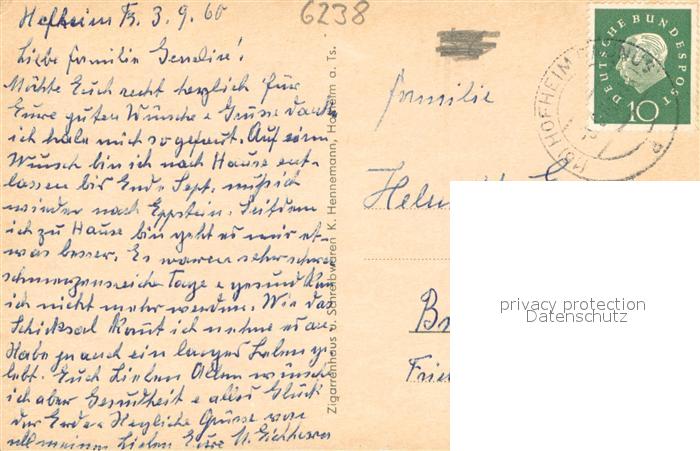 6238
Hofheim Ts. 3.9.60
Liebe Familie
Möchte Euch recht herzlich für
Eure guten Wünsche & Grüsse danke
ich habe mich so gefreut. Auf
Wunsch bin ich nach Hause ent-
lassen bis Ende Sept. muß ich
wieder nach Eppstein. Seitdem
ich zu Hause bin geht es mir et-
was besser. Es waren sehr schwere
schmerzensreiche Tage & gesund kann
ich nicht mehr werden. Wie das
Schicksal kommt ich nehme es an
Habe ja auch ein langes Leben ge-
lebt. Euch Lieben Allen wünsche
ich aber Gesundheit & alles Glück
der Erde & Herzliche Grüsse von
all meinen Lieben Eure
Zigarrenhaus u. Schreibwaren K. Hennemann, Hofheim a. Ts.
DEUTSCHE BUNDESPOST
10
HOFHEIM
Familie
privacy protection
Datenschutz